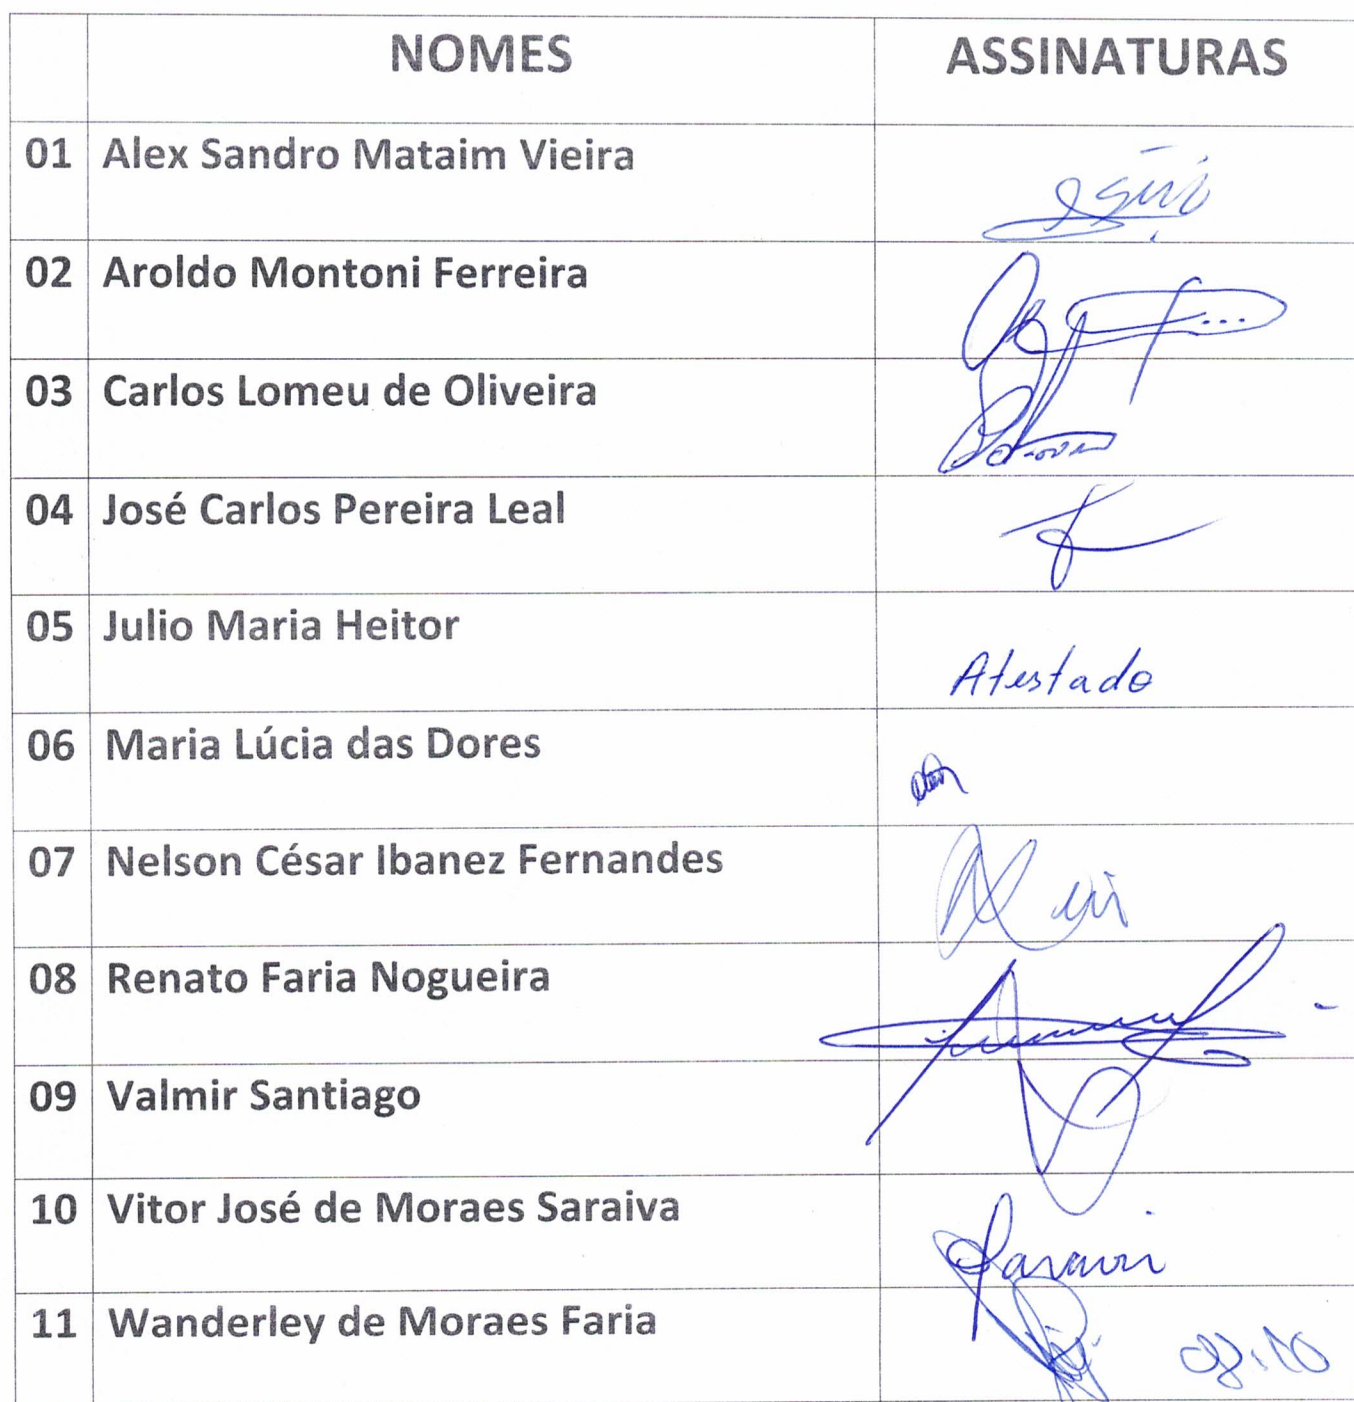 NOMES ASSINATURAS
01 Alex Sandro Mataim Vieira
02 Aroldo Montoni Ferreira
03 Carlos Lomeu de Oliveira
04 José Carlos Pereira Leal
05 Julio Maria Heitor Atestado
06 Maria Lúcia das Dores
07 Nelson César Ibanez Fernandes
08 Renato Faria Nogueira
09 Valmir Santiago
10 Vitor José de Moraes Saraiva
11 Wanderley de Moraes Faria